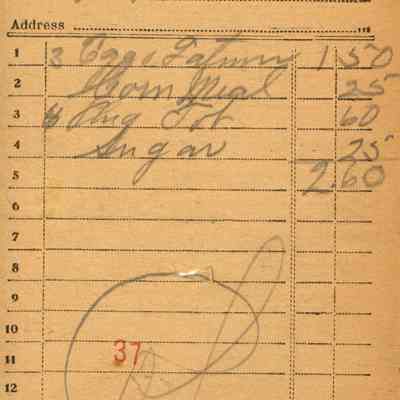 Address
1 3 Cans Fatum 1 50
2 Corn Meal 25
3 Plug Tob 60
4 Sugar 25
5 2.60
6
7
8
9
10
11 37
12